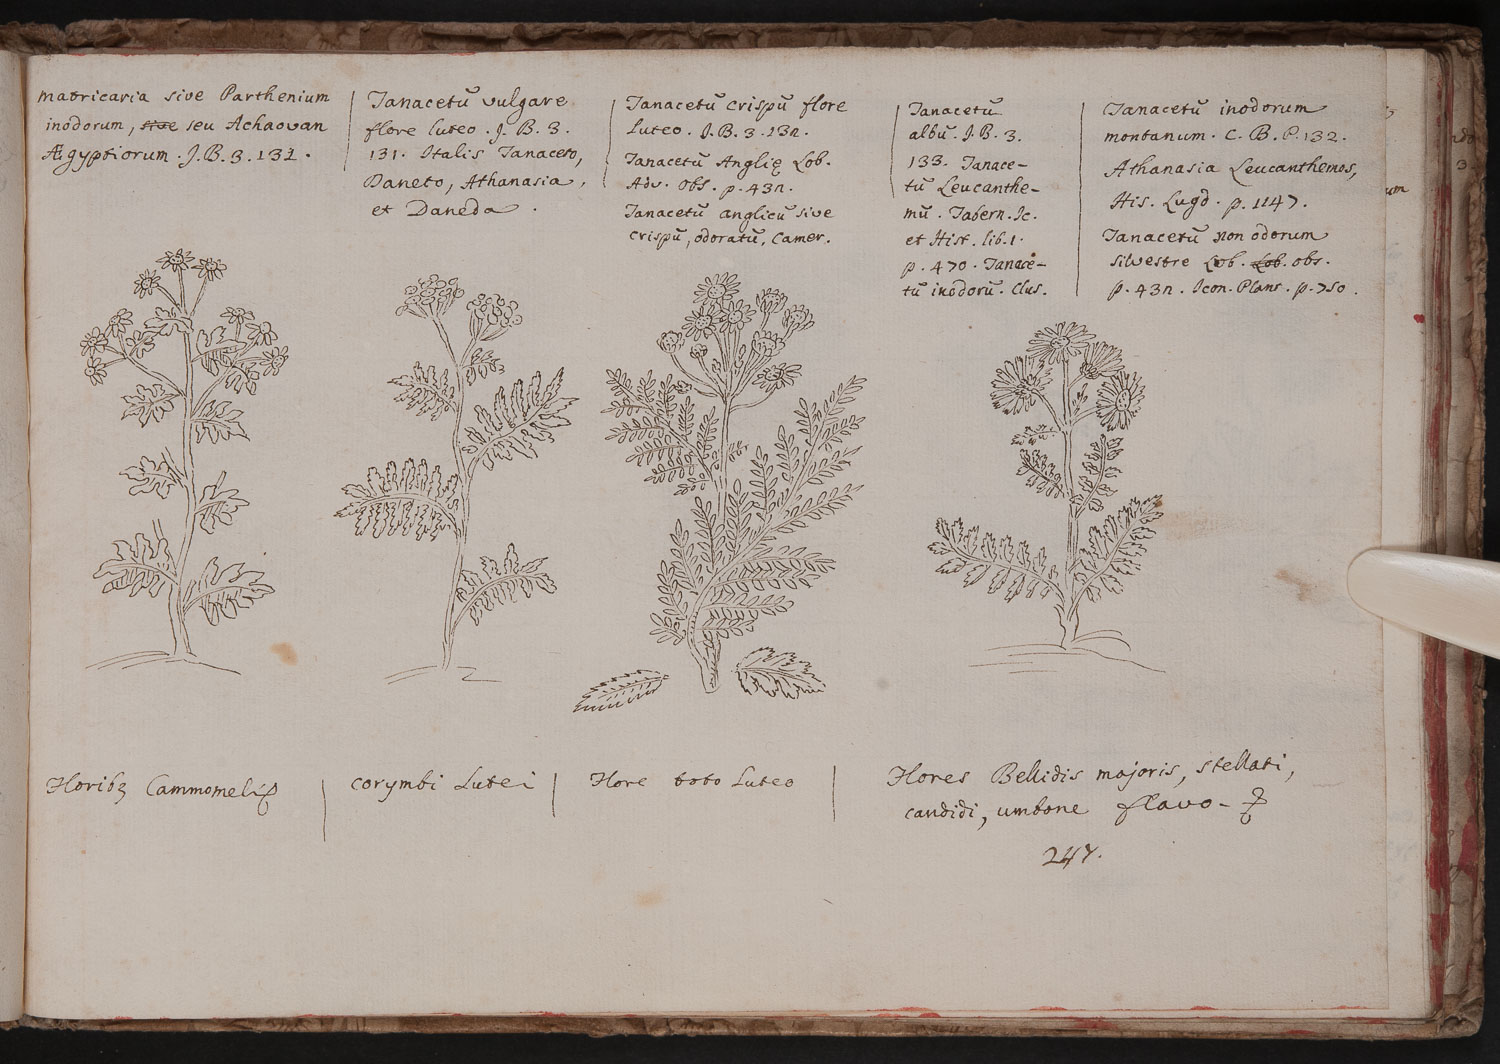 matricaria sive Parthenium
inodorum, sive seu Achaovan
Ægyptiorum. J. B. 3. 131.
Tanacetū vulgare
flore luteo. J. B. 3.
131. Italis Tanaceto,
Daneto, Athanasia,
et Daneda.
Tanacetū crispū flore
Luteo. J. B. 3. 132.
Tanacetū Anglię Lob.
Adv. obs. p. 432.
Tanacetū anglicū sive
crispū, odoratū, Camer.
Tanacetū
albū. J. B. 3.
133. Tanace-
tū Leucanthe-
mū. Tabern. Ic.
et Hist. lib. 1.
p. 470. Tanace-
tū inodorū. Clus.
Tanacetū inodorum
montanum. C. B. P. 132.
Athanasia Leucanthemos,
His. Lugd. p. 1147.
Tanacetū non odorum
silvestre Lob. Lob. obs.
p. 432. Icon. Plant. p. 750.
Floribꝫ Cammomelię
corymbi Lutei
Flore toto Luteo
Flores Bellidis majoris, stellati,
candidi, umbone flavo - ♀
247.